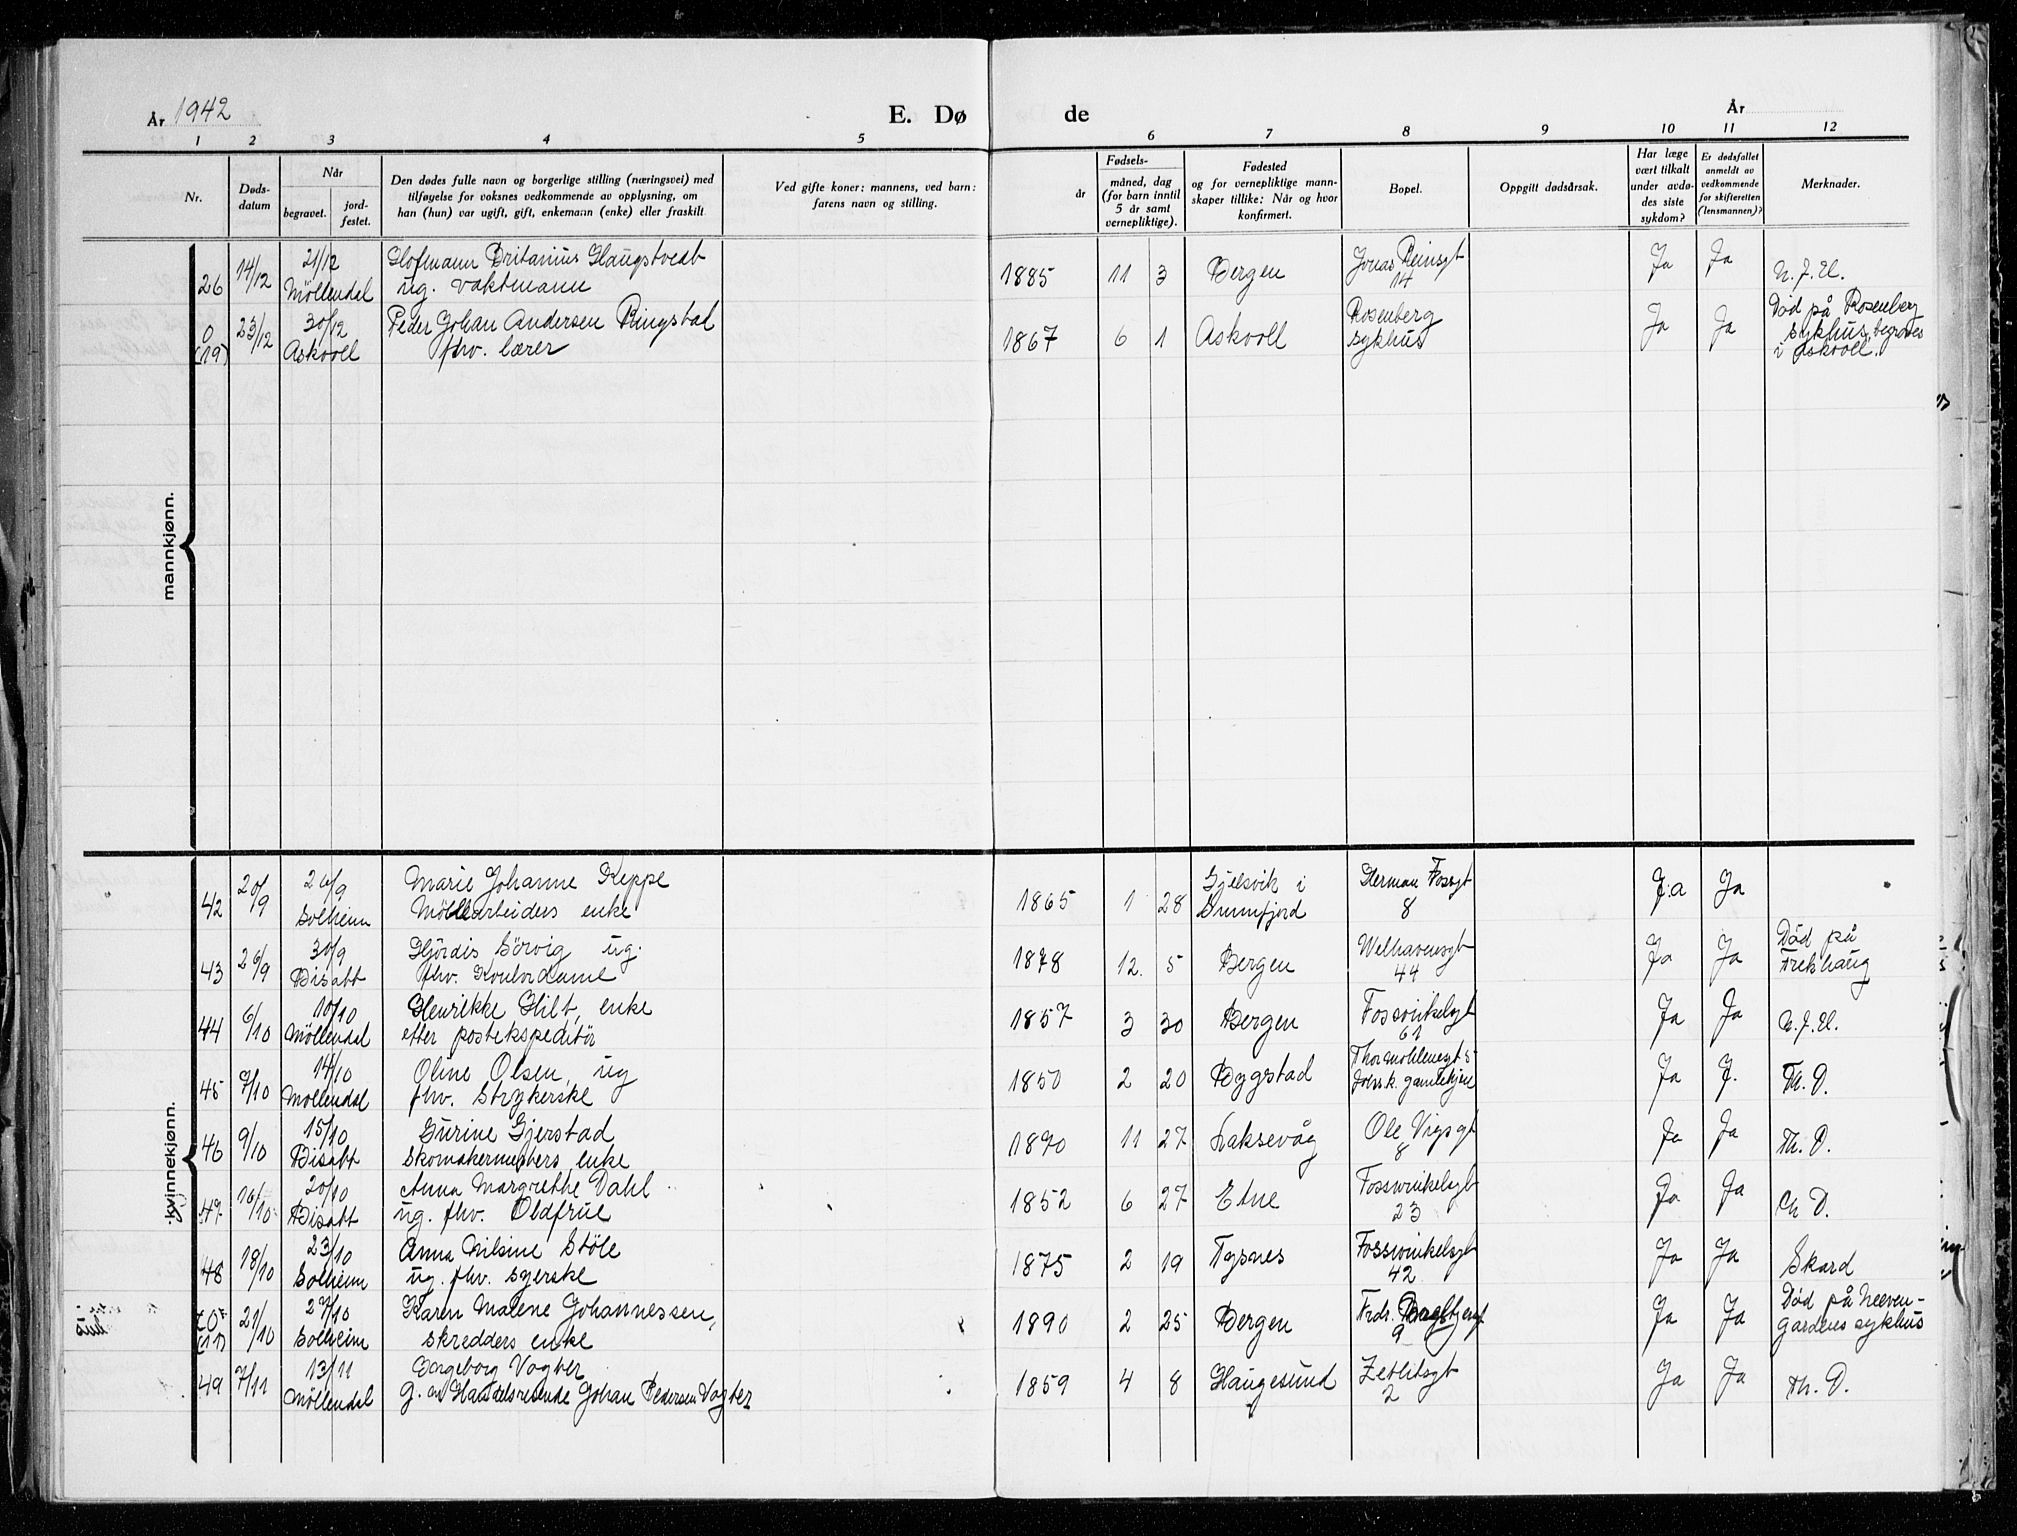 År 1942
E. Dø
de
År
1 2 3 4 5 6 7 8 9 10 11 12
Nr.
Døds-
datum
Når
begravet.
jord-
festet.
Den dødes fulle navn og borgerlige stilling (næringsvei) med
tilføyelse for voksnes vedkommende av opplysning, om
han (hun) var ugift, gift, enkemann (enke) eller fraskilt.
Ved gifte koner: mannens, ved barn:
farens navn og stilling.
Fødsels-
år
måned, dag
(for barn inntil
5 år samt
vernepliktige).
Fødested
og for vernepliktige mann-
skaper tillike: Når og hvor
konfirmert.
Bopel.
Oppgitt dødsårsak.
Har læge
vært tilkalt
under avdø-
des siste
sykdom?
Er dødsfallet
anmeldt av
vedkommende
for skifteretten
(lensmannen)?
Merknader.
mannkjønn.
14/12 21/12 Hofmann Britanius Haugstvedt Jonas Reinsgt
26 Möllendal ug. vaktmann 1885 11 3 Bergen 14 Ja Ja N.J.H.
0 23/12 30/12 Peder Johan Andersen Ringstal Rosenberg Død på Rosenberg
(19) Askvoll fhv. lærer 1867 6 1 Askvoll sykhus Ja Ja sykhus, begraves
i Askvoll.
kvinnekjønn.
20/9 26/9 Marie Johanne Keppe Gjelsvik i Herman Fossgt
42 Solheim Möllearbeiders enke 1865 1 28 Sunnfjord 8 Ja Ja
26/9 30/9 Hjördis Sörvig ug. Welhavensgt Död på
43 Disabt fhv. Kontordame 1878 12. 5 Bergen 44 Ja Ja Frekhaug
6/10 10/10 Henrikke Hilt, enke Fosswinkelsgt
44 Möllendal efter postekspeditör 1857 3 30 Bergen 61 Ja Ja N.J.H.
7/10 14/10 Oline Olsen, ug Thormöhlensgt 5
45 Möllendal fhv. Strykerske 1850 2 20 Bygstad Johsk. gamlehjem Ja J. Th. D.
9/10 15/10 Gurine Gjerstad Ole Vigsgt
46 Disabt Skomakermesters enke 1890 11 27 Laksevåg 8 Ja Ja Th. D.
16/10 20/10 Anna Margrethe Dahl Fosswinkelsgt
47 Disabt ug. fhv. Oldfrue 1852 6 27 Etne 23 Ja Ja Th D.
18/10 23/10 Anna Nilsine Stöle Fosswinkelsgt
48 Solheim ug. fhv. syerske 1875 2 19 Tysnes 42 Ja Ja Skard
0 21/10 27/10 Karen Malene Johannessen, Frdr. Död på Neeven-
(17) Solheim skredders enke 1890 2 25 Bergen 9 Ja Ja gårdens sykhus
7/11 13/11 Ingeborg Vogter Zetlitzgt
49 Möllendal g. m Handelsreisende Johan Pedersen Vogter 1859 4 8 Haugesund 2 Ja Ja Th. D.